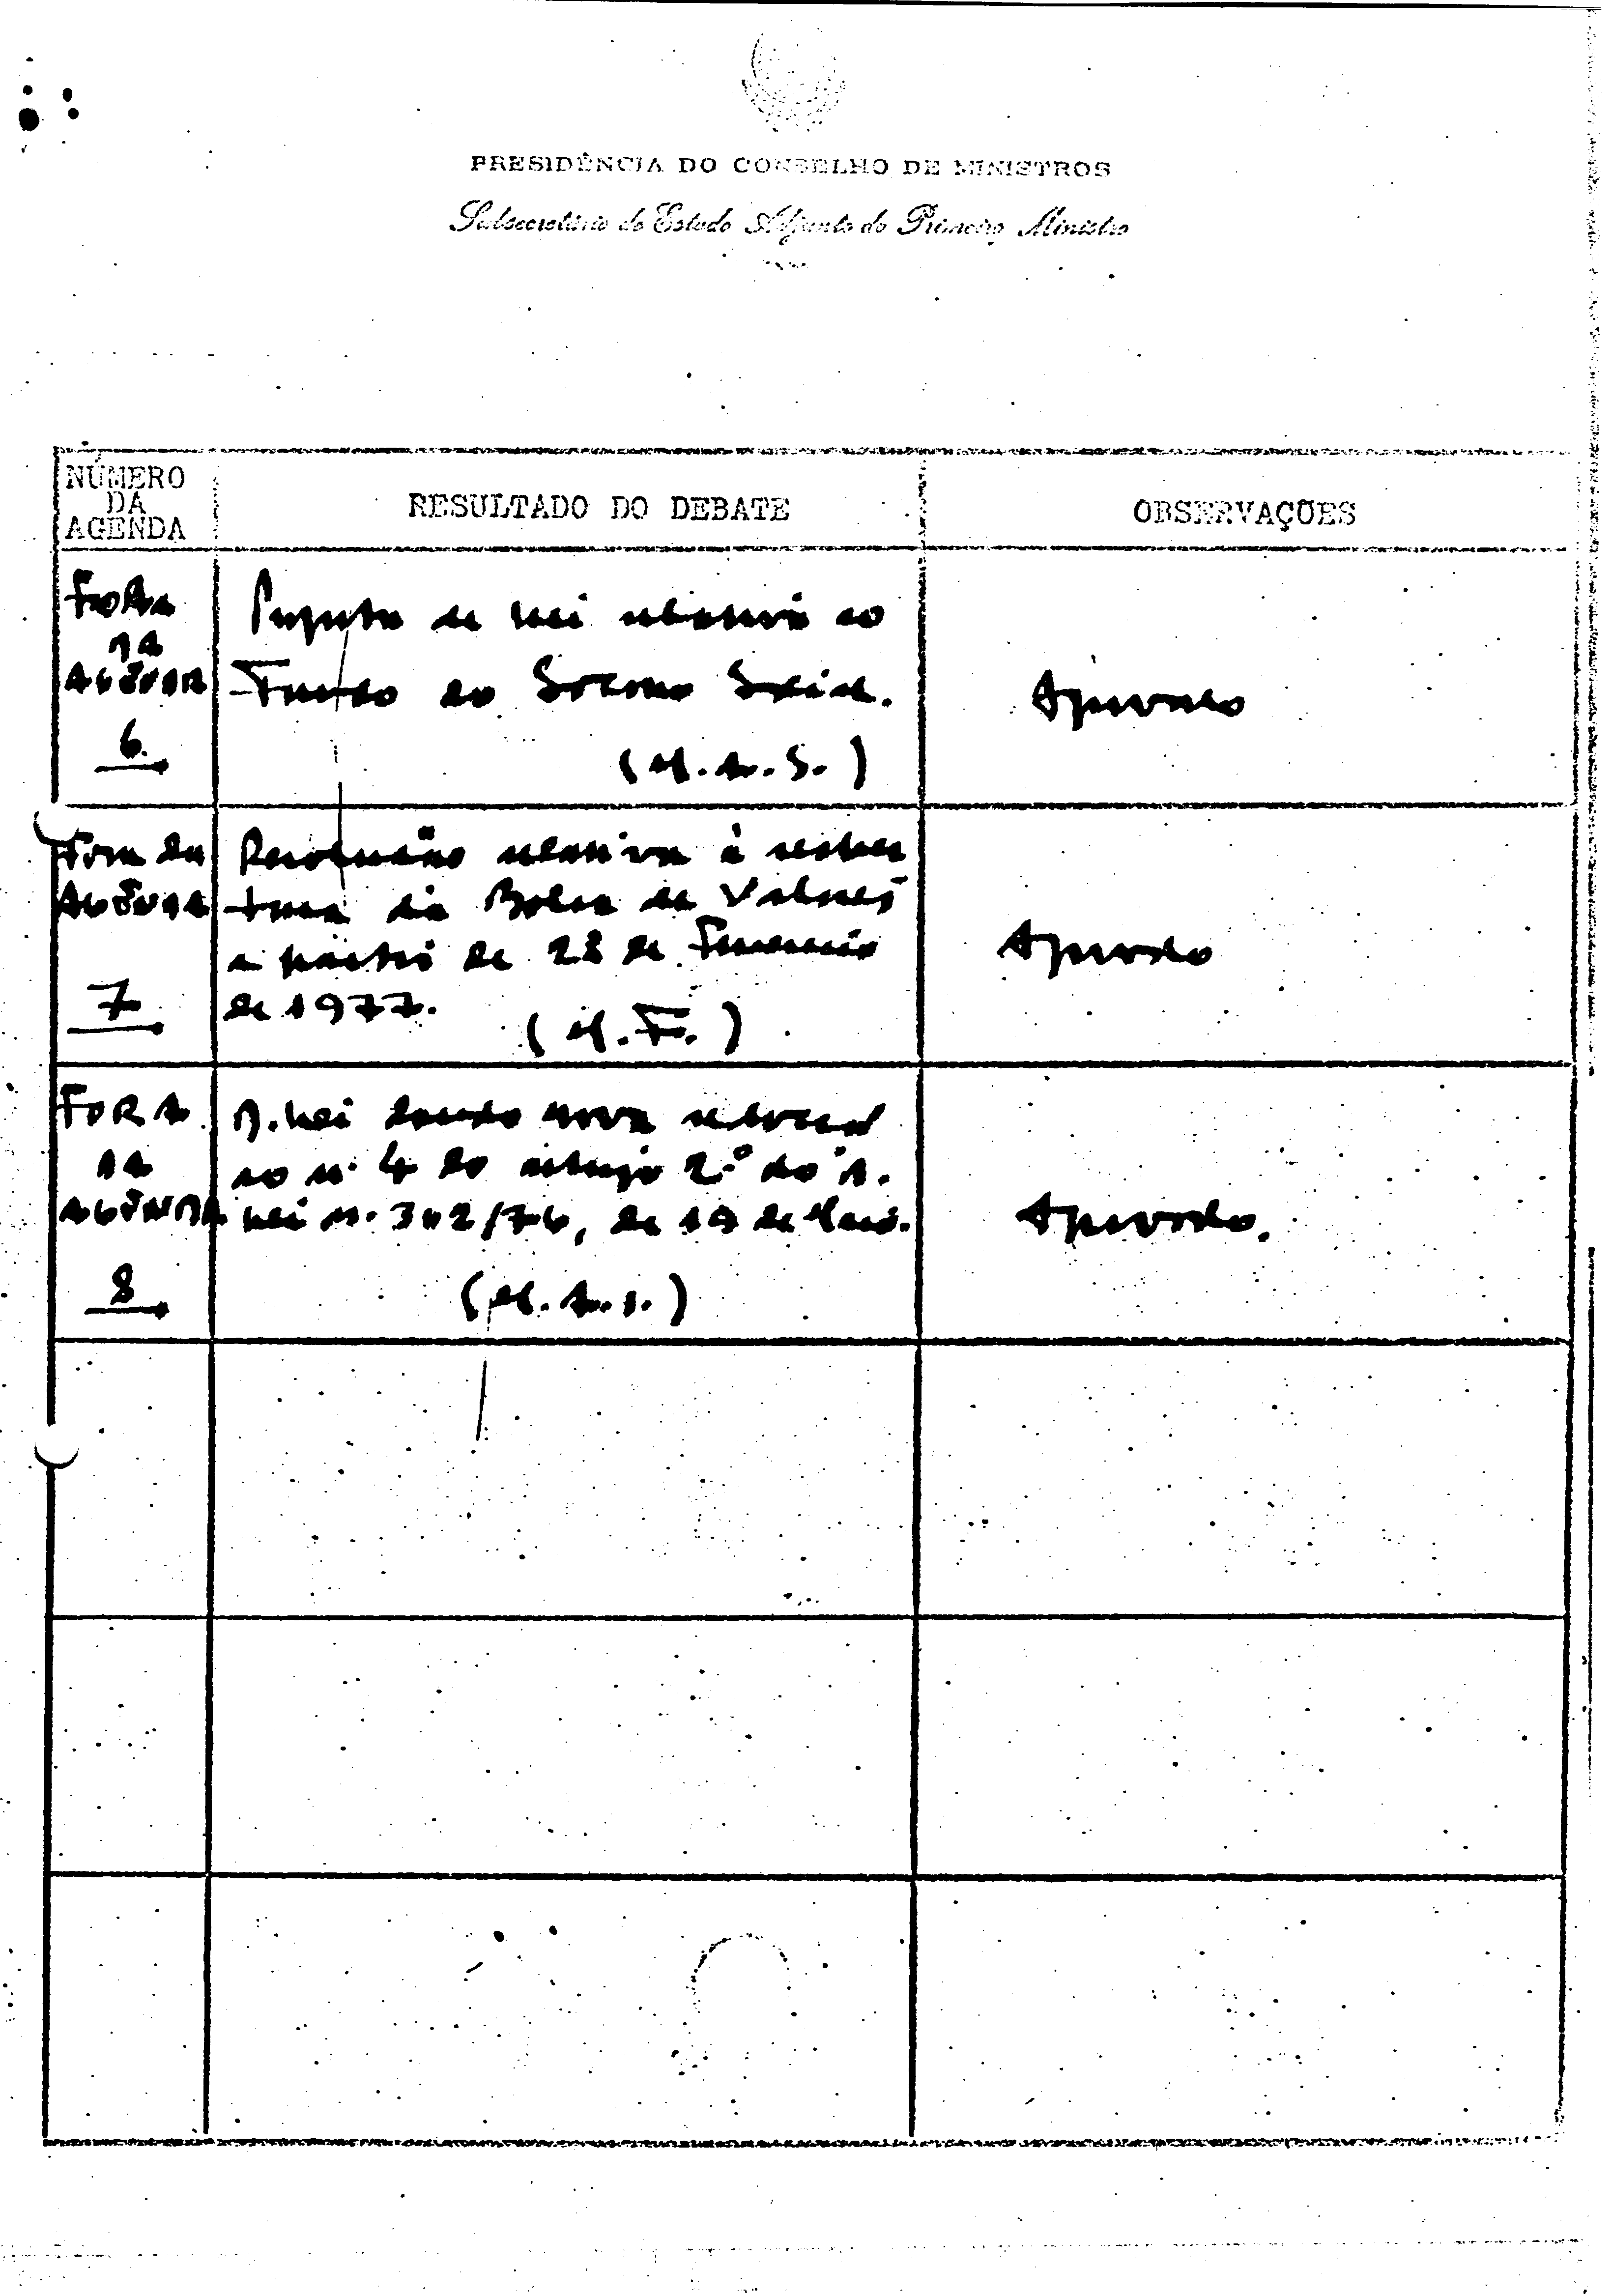 PRESIDÊNCIA DO CONSELHO DE MINISTROS
Subsecretário de Estado Adjunto do Primeiro Ministro
NÚMERO
DA
AGENDA
RESULTADO DO DEBATE
OBSERVAÇÕES
FORA
DA
AGENDA
6.
Proposta de Lei relativa ao
Fundo do Socorro Social.
(M.A.S.)
Aprovado
Fora da
AGENDA
7
Resolução relativa à reaber
tura da Bolsa de Valores
a partir de 28 de Fevereiro
de 1977.
(M.F.)
Aprovado
FORA
DA
AGENDA
8
D. Lei dando nova redacção
ao n.º 4 do artigo 2.º do D.
Lei n.º 382/76, de 19 de Maio.
(M.A.S.)
Aprovado.